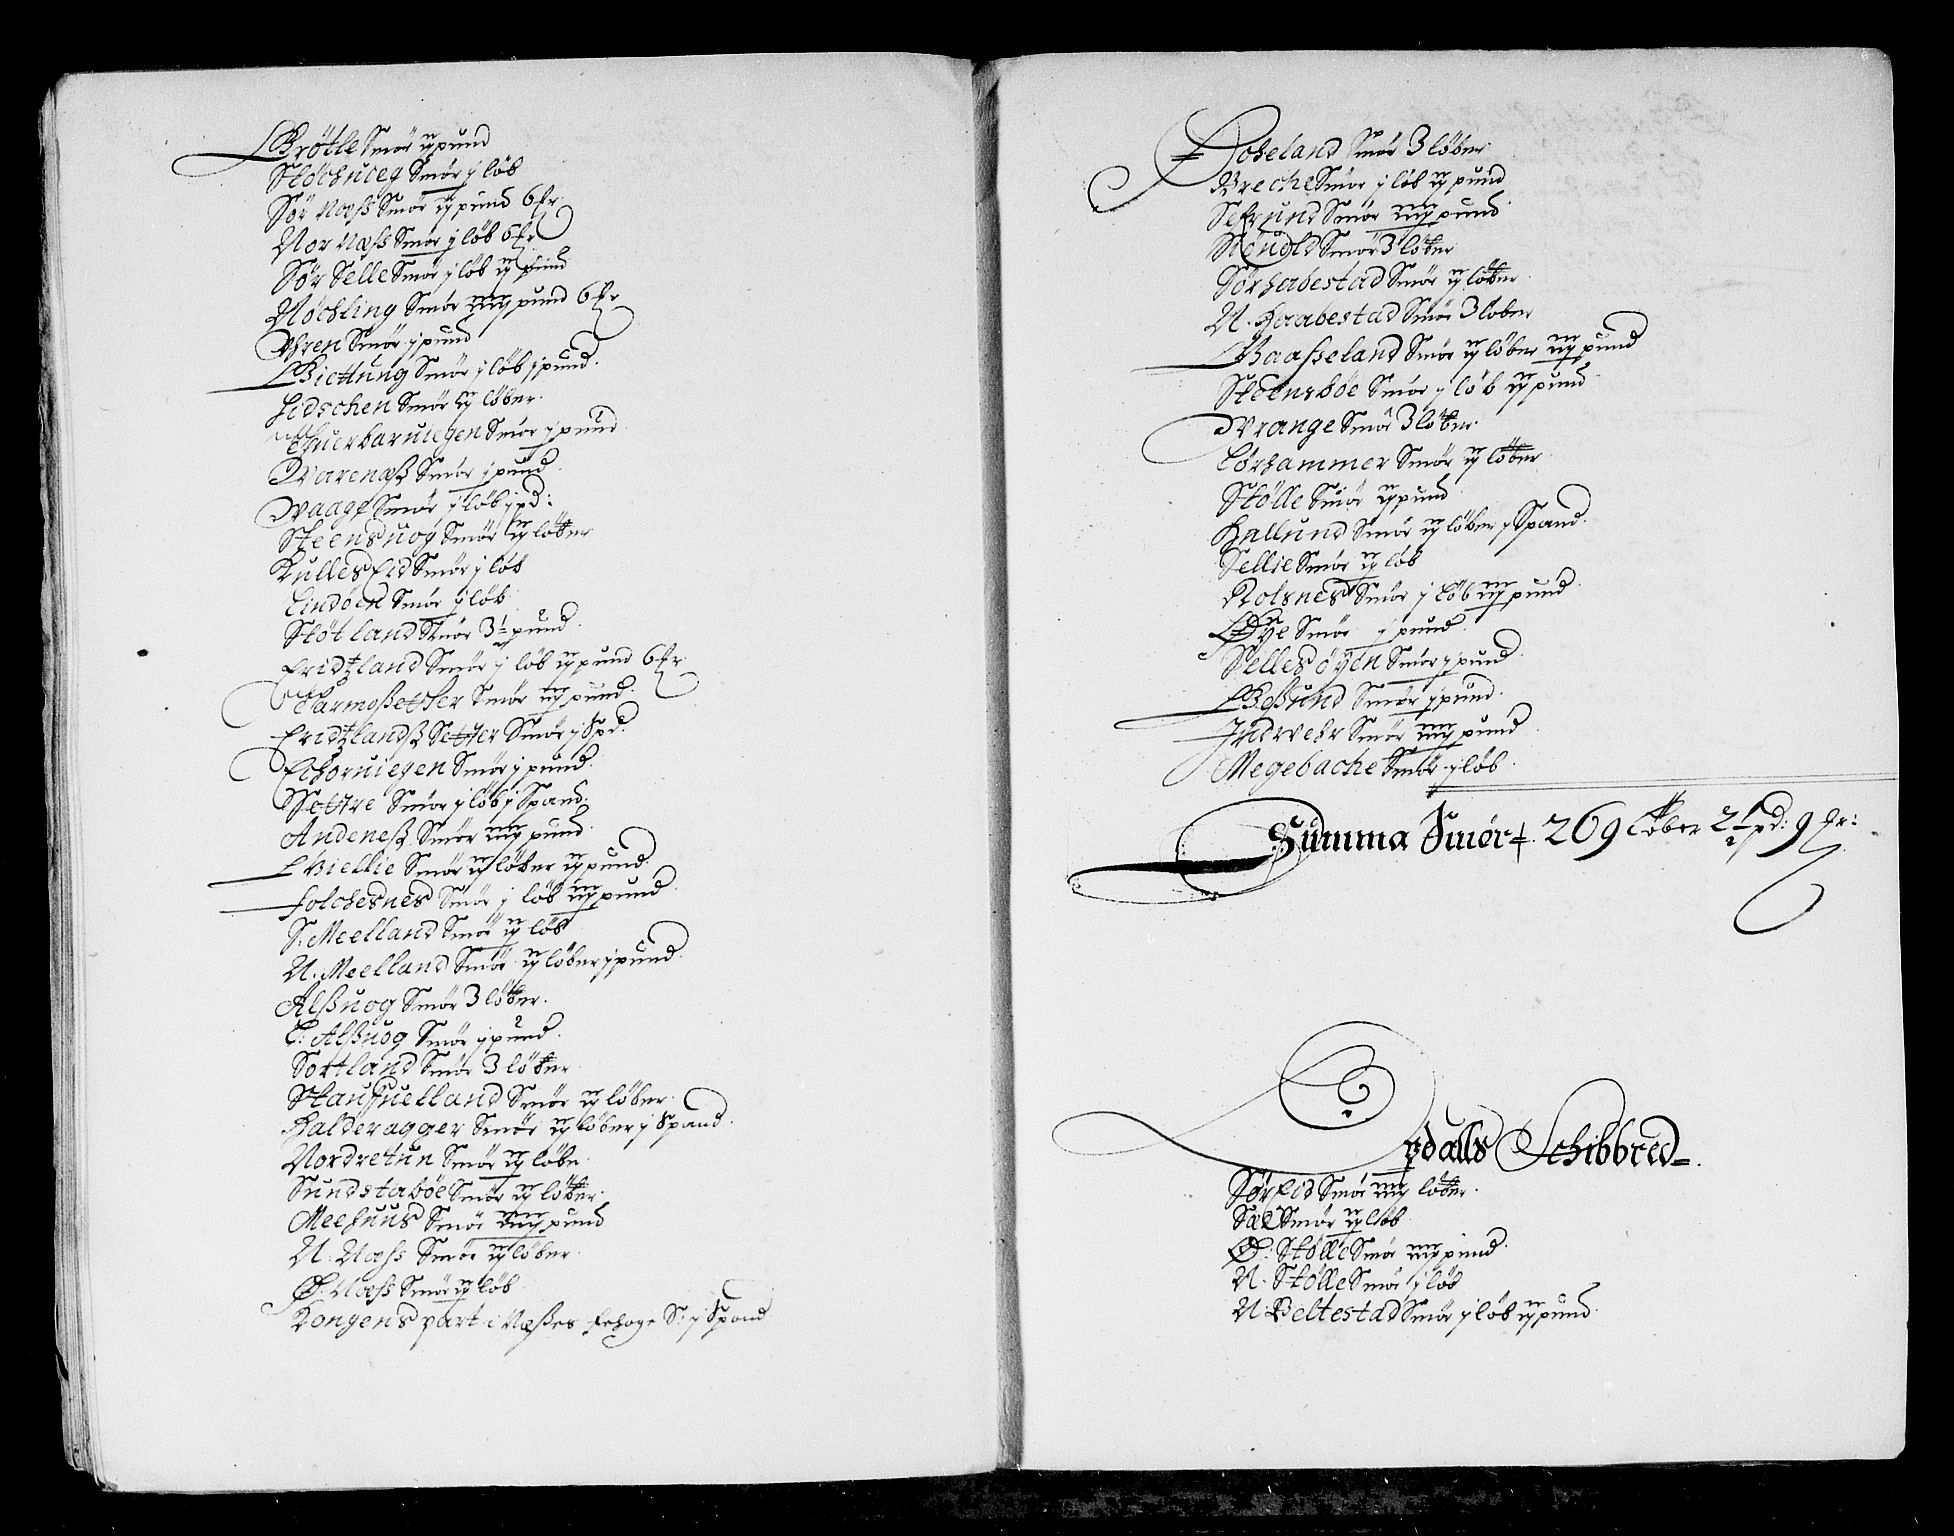 Brötle Smör ij pund
Stöchueg Smör j löb
Sör Næss Smör ij pund 6 ℔r
Nor Næss Smör j löb 6 ℔r
Sör Selle Smör j löb ij pund
Nöchling Smör iiij pund 6 ℔r
Uhren Smör j pund
Biettung Smör j löb j pund.
Hidschen Smör ij löber.
Smör j pund
Warenæß Smör j pund
Waage Smör j löb j pd:
Steensuog Smör ij löber
Kulles Eid Smör j löb
Lindöen Smör j löb
Stötland Smör 3½ pund
Eridtzland Smör j löb ij pund 6 ℔r
Tarmoßetther Smör iij pund.
Eridtzlandß Setter Smör j Spd.
Echoruiegen Smör j pund.
Settre Smör j löb j Spand.
Andeneß Smör iiij pund
Biellie Smör ij löber ij pund.
Folchesnes Smör j löb iij pund
S. Meelland Smör ij löb
N. Meelland Smör ij löber j pund.
Alßuog Smör 3 löber.
L: Alßuog Smör j pund.
Sortland Smör 3 löber
Smör ij löber.
Halderagger Smör ij löber j Spand.
Nordretun Smör ij löbr
Sundstaböe Smör ij löber.
Meehuus Smör iiij pund
N. Næss Smör ij löber.
Ø. Næss Smör ij löb
Kongens part i Næßes S: j Spand
Hoheland Smör 3 löber
Breche Smör j löb ij pund
Sefrund Smör iiij pund
Smör 3 löber
Sör Habestad Smör ij löber.
N. Haabestad Smör 3 löber
Baaßeland Smör ij löber iij pund
Steensböe Smör j löb ij pund
Wrange Smör 3 löber.
Törhammer Smör ij löber
Stölle Smör ij pund
Hallund Smör ij löber j Spand.
Sellie Smör ij löb
Rolsnes Smör j löb iij pund
Øye Smör j pund.
Sellesöyen Smör j pund
Beßund Smör j pund.
Indwehr Smör iiij pund
Megebache Smör j löb.
Summa Smör 269 Löber 2½ pd: 9 ℔r:
Opdalls Schibbred.
Sör Eid Smör iiij löber.
Sæl Smör ij löb
Ø: Stölle Smör iiij pund.
N. Stölle Smör j löb
N: Beltestad Smör j löb ij pund.